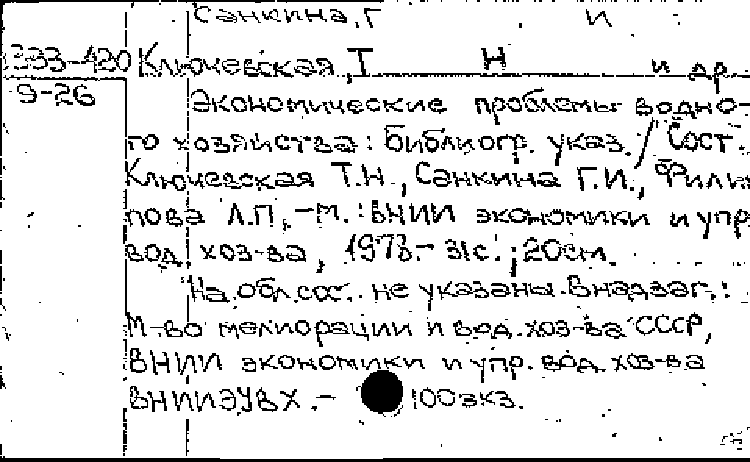 Санкина, Г И
333-420 Ключевская, Т Н и др.
9-26
Экономические проблемы водно-
го хозяйства: Библиогр. указ. / Сост.
Ключевская Т.Н., Санкина Г.И., Филип
пова Л.П, -М.: ВНИИ экономики и упр.
вод. хоз-ва, 1973.- 31с.; 20см.
На обл. сос. не указаны. В надзаг.:
М-во мелиорации и вод. хоз-ва СССР,
ВНИИ экономики и упр. вод. хоз-ва
ВНИИЭУВХ.- 100экз.